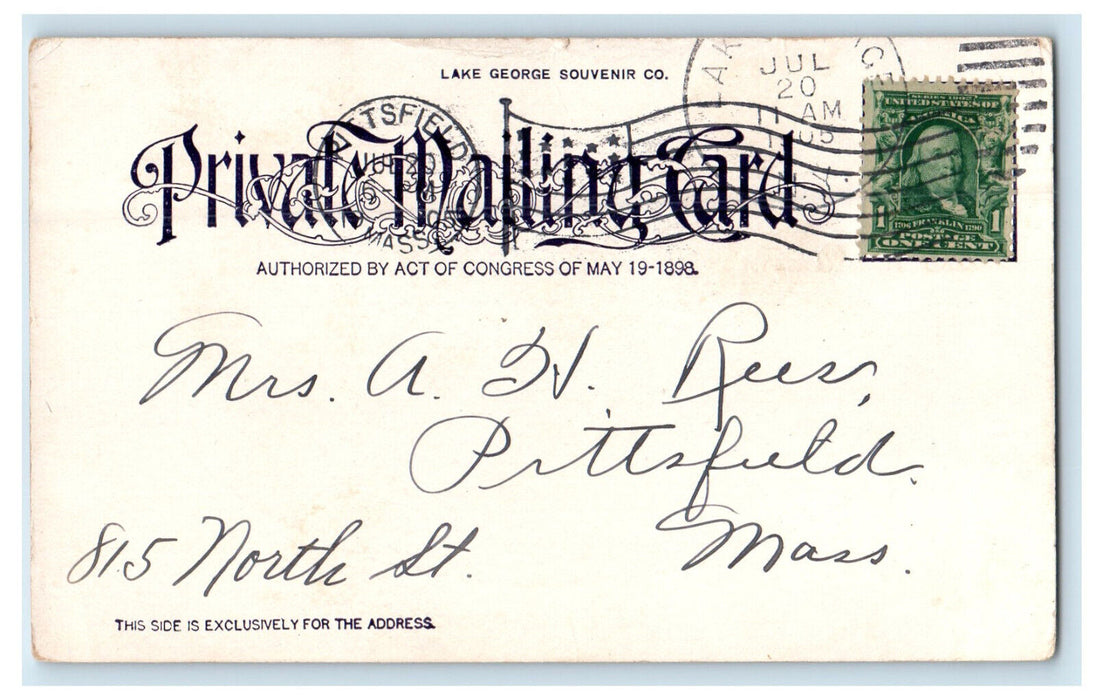 LAKE GEORGE SOUVENIR CO.
JUL
20
11 AM
05
PITTSFIELD
MASS
Private Mailing Card
AUTHORIZED BY ACT OF CONGRESS OF MAY 19-1898.
SERIES 1902
UNITED STATES OF
AMERICA
1 1
1706 FRANKLIN 1790
POSTAGE
ONE CENT
Mrs. A. H. Rees,
Pittsfield.
815 North St. Mass.
THIS SIDE IS EXCLUSIVELY FOR THE ADDRESS.